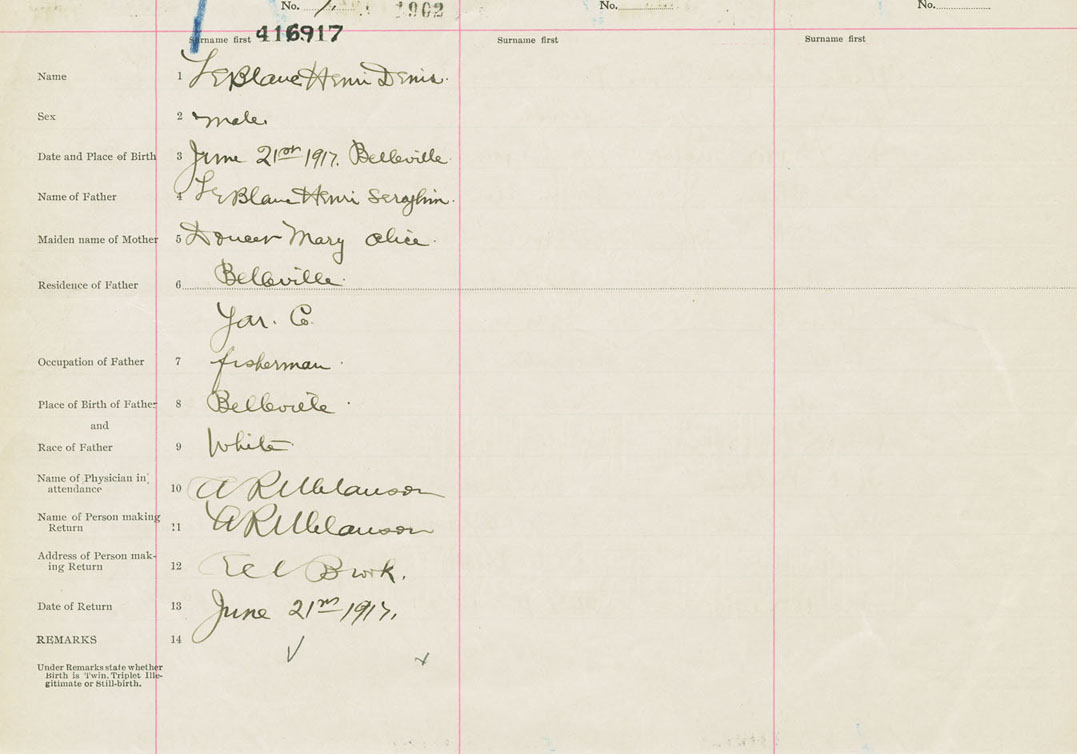 No. 1902 No. No.
Surname first 416917 Surname first Surname first
Name 1 LeBlanc Henri Denis.
Sex 2 male.
Date and Place of Birth 3 June 21st 1917. Belleville.
Name of Father 4 LeBlanc Henri Seraphin.
Maiden name of Mother 5 Doucet Mary Alice.
Belleville.
Residence of Father 6
Yar. Co.
Occupation of Father 7 fisherman.
Place of Birth of Father 8 Belleville.
and
Race of Father 9 White
Name of Physician in
attendance 10 A R Melanson
Name of Person making
Return 11 A R Melanson
Address of Person mak-
ing Return 12 Eel Brook.
Date of Return 13 June 21st 1917.
REMARKS 14
Under Remarks state whether
Birth is Twin, Triplet Ille-
gitimate or Still-birth.